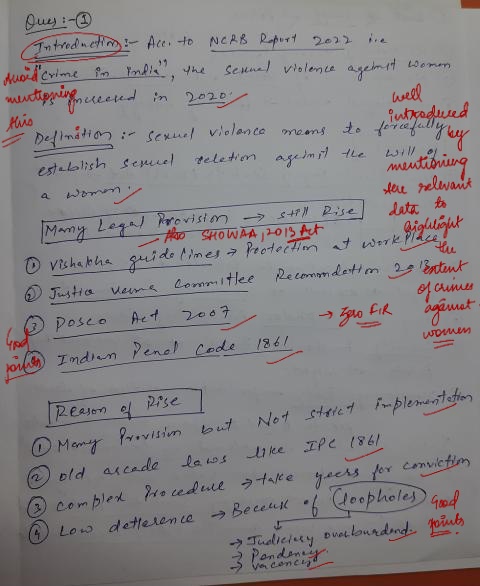 Ques:- (1)
Introduction:- Acc. to NCRB Report 2022 i.e
"Crime in India", the sexual violence against women
is increased in 2020.
Avoid
mentioning
this
Definition:- sexual violence means to forcefully
establish sexual relation against the will of
a women.
well
introduced
by
mentioning
the relevant
data to
highlight
the
extent
of crimes
against
women
Many Legal Provision → still Rise
Also SHOWAA, 2013 Act
① Vishakha guidelines → Protection at workplace
② Justice verma Committee Recommdation 2013
③ Posco Act 2007
→ Zero FIR
④ Indian Penal Code 1861
Good
points
Reason of Rise
① Many Provision but Not strict implementation
② old arcade laws like IPC 1861
③ complex Procedure → take years for conviction
④ Low detterence → Becaus of loopholes
→ Judiciary overburdend
→ Pendency
→ vacancies
Good
points.